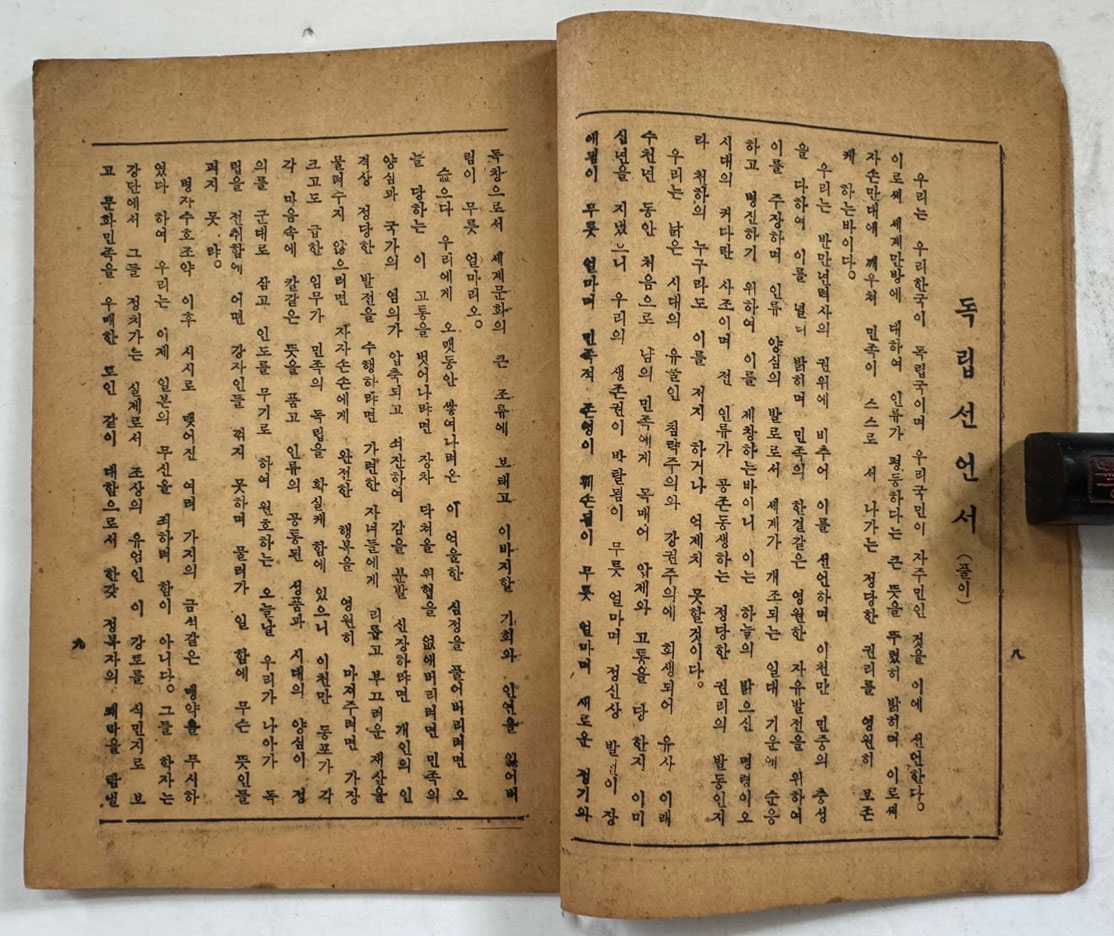 독립선언서(풀이)
우리는 우리한국이 독립국이며 우리국민이 자주민인 것을 이에 선언한다。
이로써 세계만방에 대하여 인류가 평등하다는 큰 뜻을 뚜렸히 밝히며 이로써
자손만대에 깨우처 민족이 스스로 서 나가는 정당한 권리를 영원히 보존
케 하는바이다。
우리는 반만년력사의 권위에 비추어 이를 선언하며 이천만 민중의 충성
을 다하여 이를 널리 밝히며 민족의 한결같은 영원한 자유발전을 위하여
이를 주장하며 인류 양심의 발로로서 세계가 개조되는 일대 기운에 순응
하고 병진하기 위하여 이를 제창하는바이니 이는 하늘의 밝으신 명령이오
시대의 커다란 사조이며 전 인류가 공존동생하는 정당한 권리의 발동인지
라 천하의 누구라도 이를 저지 하거나 억제치 못할것이다。
우리는 낡은 시대의 유물인 침략주의와 강권주의에 희생되어 유사 이래
수천년 동안 처음으로 남의 민족에게 목매어 압제와 고통을 당 한지 이미
십년을 지냈으니 우리의 생존권이 박탈됨이 무릇 얼마며 정신상 발전이 장
애됨이 무릇 얼마며 민족적 존영이 훼손됨이 무릇 얼마며 새로운 정기와
八
독창으로서 세계문화의 큰 조류에 보태고 이바지할 기회와 인연을 잃어버
림이 무릇 얼마리오。
슲으다 우리에게 오랫동안 쌓여나려온 이 억울한 심정을 풀어버리려면 오
늘 당하는 이 고통을 벗어나랴면 장차 닥쳐올 위협을 없애버리려면 민족의
양심과 국가의 염의가 압축되고 쇠잔하여 감을 분발 신장하랴면 개인의 인
격상 정당한 발전을 수행하랴면 가련한 자녀들에게 괴롭고 부끄러운 재산을
물려주지 않으려면 자자손손에게 완전한 행복을 영원히 마저주려면 가장
크고도 급한 임무가 민족의 독립을 확실케 함에 있으니 이천만 동포가 각
각 마음속에 칼같은 뜻을 품고 인류의 공통된 성품과 시대의 양심이 정
의를 군대로 삼고 인도를 무기로 하여 원호하는 오늘날 우리가 나아가 독
립을 전취함에 어떤 강자인들 꺾지 못하며 물러가 일 함에 무슨 뜻인들
펴지 못 랴。
병자수호조약 이후 시시로 맺어진 여러 가지의 금석같은 맹약을 무시하
였다 하여 우리는 이제 일본의 무신을 죄하려 함이 아니다。그들 학자는
강단에서 그들 정치가는 실제로서 조상의 유업인 이 강토를 식민지로 보
고 문화민족을 우매한 토인 같이 대함으로서 한갖 정복자의 쾌락을 탐낼
九